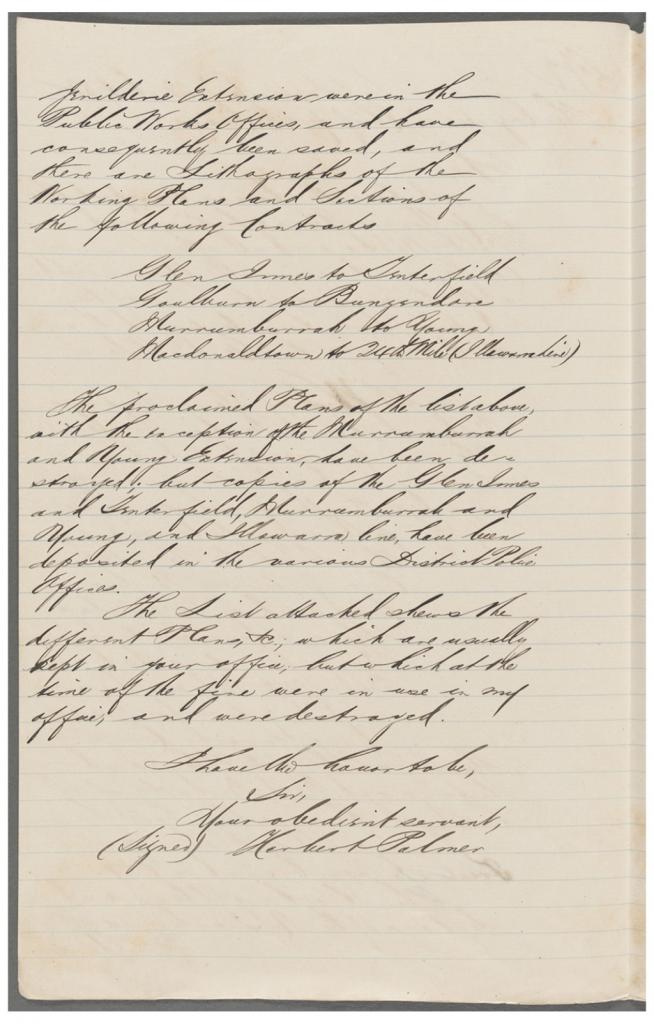 Jerilderie Extension were in the
Public Works Offices, and have
consequently been saved, and
there are Lithographs of the
Working Plans and Sections of
the following Contracts
Glen Innes to Tenterfield
Goulburn to Bungendore
Murrumburrah to Young
Macdonaldtown to 24th Mile (Illawarra Line)
The proclaimed Plans of the list above,
with the exception of the Murrumburrah
and Young Extension, have been de-
stroyed; but copies of the Glen Innes
and Tenterfield, Murrumburrah and
Young, and Illawarra line, have been
deposited in the various District Police
Offices.
The List attached shews the
different Plans, &c, which are usually
kept in your office, but which at the
time of the fire were in use in my
office, and were destroyed.
I have the honor to be,
Sir,
Your obedient servant,
(Signed) Herbert Palmer